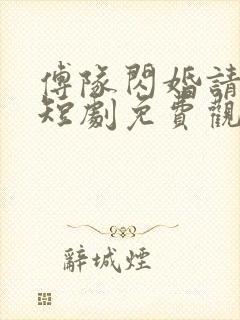 傅隊閃婚請
短劇免費觀
辭城煙